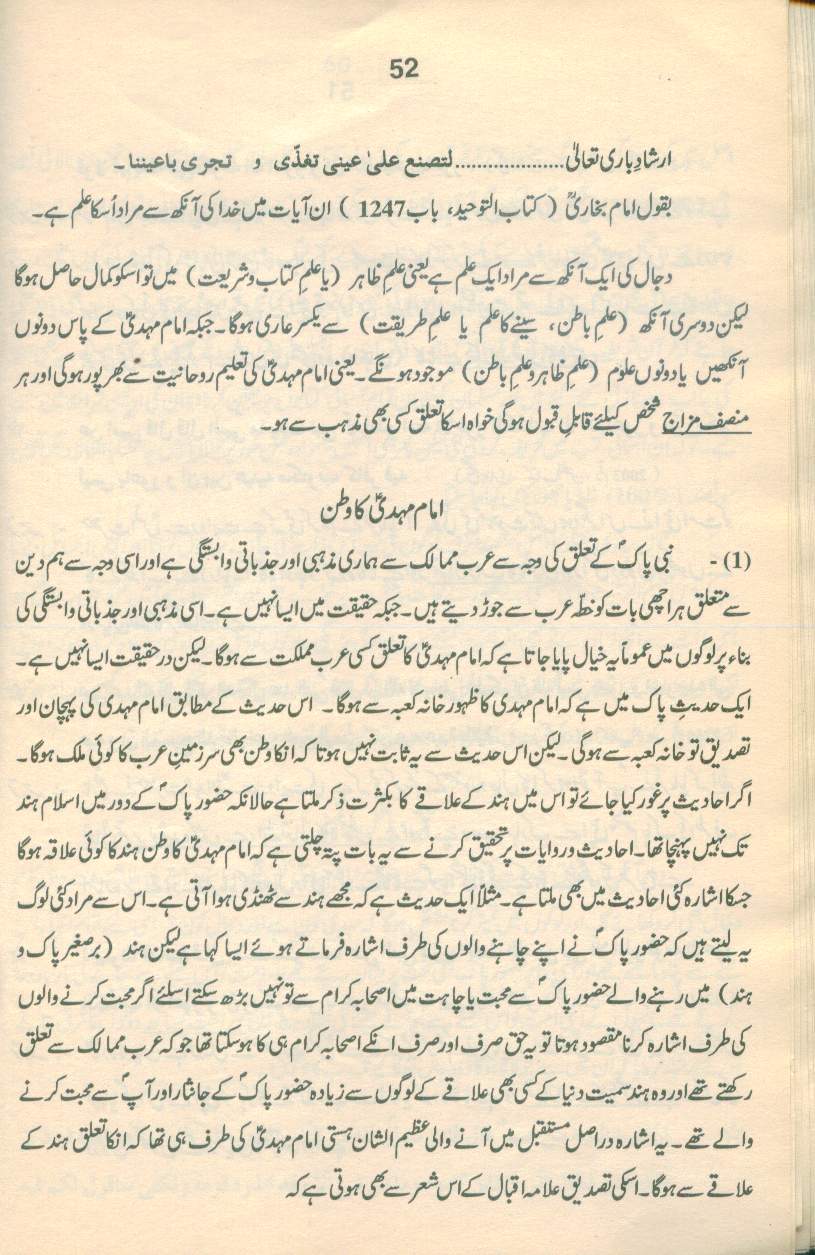 52
ارشادِ باری تعالیٰ....................لتصنع علیٰ عینی تغذّی و تجری باعیننا۔
بقول امام بخاریؒ (کتاب التوحید، باب 1247 ) ان آیات میں خدا کی آنکھ سے مراد اُسکا علم ہے۔
دجال کی ایک آنکھ سے مراد ایک علم ہے یعنی علمِ ظاہر (یا علمِ کتاب و شریعت) میں تو اسکو کمال حاصل ہوگا
لیکن دوسری آنکھ (علمِ باطن، سینے کا علم یا علمِ طریقت) سے یکسر عاری ہوگا۔ جبکہ امام مہدیؑ کے پاس دونوں
آنکھیں یا دونوں علوم (علمِ ظاہر و علمِ باطن) موجود ہونگے۔ یعنی امام مہدیؑ کی تعلیم روحانیت سے بھرپور ہوگی اور ہر
منصف مزاج شخص کیلئے قابلِ قبول ہوگی خواہ اسکا تعلق کسی بھی مذہب سے ہو۔
امام مہدیؑ کا وطن
(1)- نبی پاکؐ کے تعلق کی وجہ سے عرب ممالک سے ہماری مذہبی اور جذباتی وابستگی ہے اور اسی وجہ سے ہم دین
سے متعلق ہر اچھی بات کو خطۂ عرب سے جوڑ دیتے ہیں۔ جبکہ حقیقت میں ایسا نہیں ہے۔ اسی مذہبی اور جذباتی وابستگی کی
بناء پر لوگوں میں عموماً یہ خیال پایا جاتا ہے کہ امام مہدیؑ کا تعلق کسی عرب مملکت سے ہوگا۔ لیکن درحقیقت ایسا نہیں ہے۔
ایک حدیثِ پاک میں ہے کہ امام مہدی کا ظہور خانہ کعبہ سے ہوگا۔ اس حدیث کے مطابق امام مہدی کی پہچان اور
تصدیق تو خانہ کعبہ سے ہوگی۔ لیکن اس حدیث سے یہ ثابت نہیں ہوتا کہ انکا وطن بھی سرزمینِ عرب کا کوئی ملک ہوگا۔
اگر احادیث پر غور کیا جائے تو اس میں ہند کے علاقے کا بکثرت ذکر ملتا ہے حالانکہ حضور پاکؐ کے دور میں اسلام ہند
تک نہیں پہنچا تھا۔ احادیث و روایات پر تحقیق کرنے سے یہ بات پتہ چلتی ہے کہ امام مہدیؑ کا وطن ہند کا کوئی علاقہ ہوگا
جسکا اشارہ کئی احادیث میں بھی ملتا ہے۔ مثلاً ایک حدیث ہے کہ مجھے ہند سے ٹھنڈی ہوا آتی ہے۔ اس سے مراد کئی لوگ
یہ لیتے ہیں کہ حضور پاکؐ نے اپنے چاہنے والوں کی طرف اشارہ فرماتے ہوئے ایسا کہا ہے لیکن ہند (برصغیر پاک و
ہند) میں رہنے والے حضور پاکؐ سے محبت یا چاہت میں اصحابہ کرام سے تو نہیں بڑھ سکتے اسلئے اگر محبت کرنے والوں
کی طرف اشارہ کرنا مقصود ہوتا تو یہ حق صرف اور صرف انکے اصحابہ کرام ہی کا ہوسکتا تھا جو کہ عرب ممالک سے تعلق
رکھتے تھے اور وہ ہند سمیت دنیا کے کسی بھی علاقے کے لوگوں سے زیادہ حضور پاکؐ کے جانثار اور آپؐ سے محبت کرنے
والے تھے۔ یہ اشارہ دراصل مستقبل میں آنے والی عظیم الشان ہستی امام مہدیؑ کی طرف ہی تھا کہ انکا تعلق ہند کے
علاقے سے ہوگا۔ اسکی تصدیق علامہ اقبال کے اس شعر سے بھی ہوتی ہے کہ